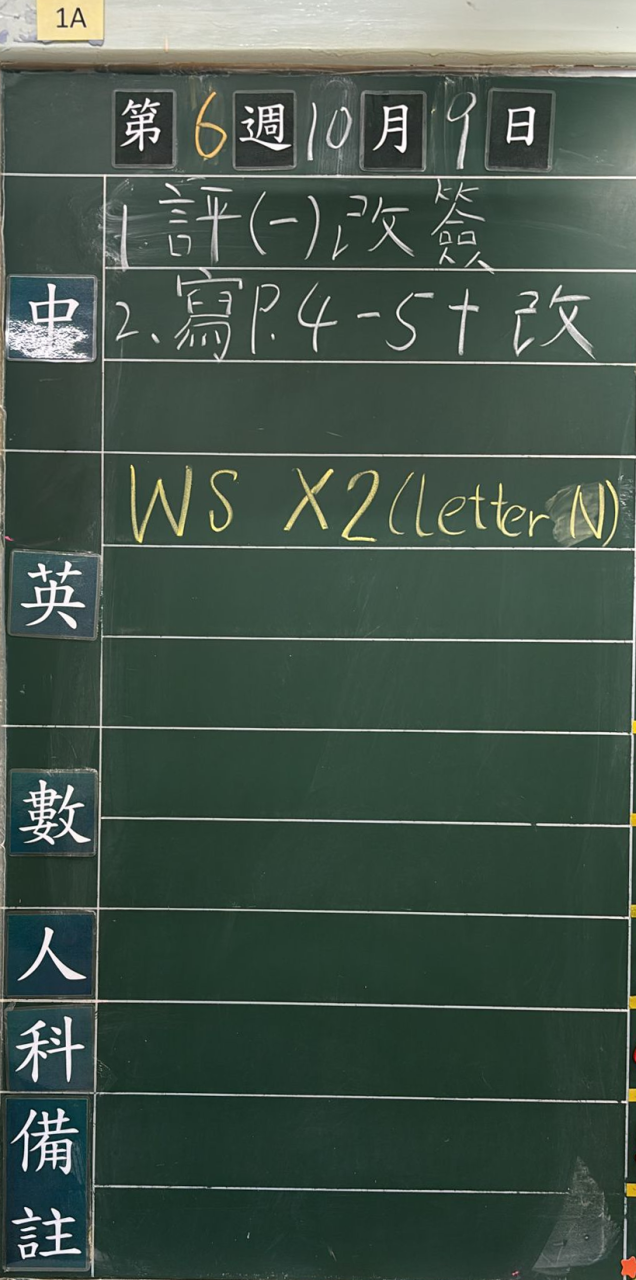 1A
第6週10月9日
1.評(一)改簽
中
2.寫P.4-5+改
WS X2(letter N)
英
數
人
科
備
註